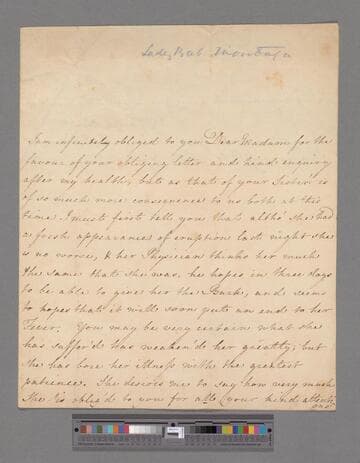 Lady Bab Montagu
I am infinitely obliged to you Dear Madam for the
favour of your obliging letter and kind enquiry
after my health, but as that of your Sister is
of so much more consequence to us both at this
time I must first tell you that altho' she had
a fresh appearance of eruption last night she
is no worse, & her Physician thinks her much
the same that she was. he hopes in three days
to be able to give her the Bark, and seems
to hope that it will soon put an end to her
Fever. You may be very certain what she
has suffer'd has weaken'd her greatly; but
she has bore her illness with the greatest
patience. She desires me to say how very much
She is oblig'd to you for all your kind attenti
ons